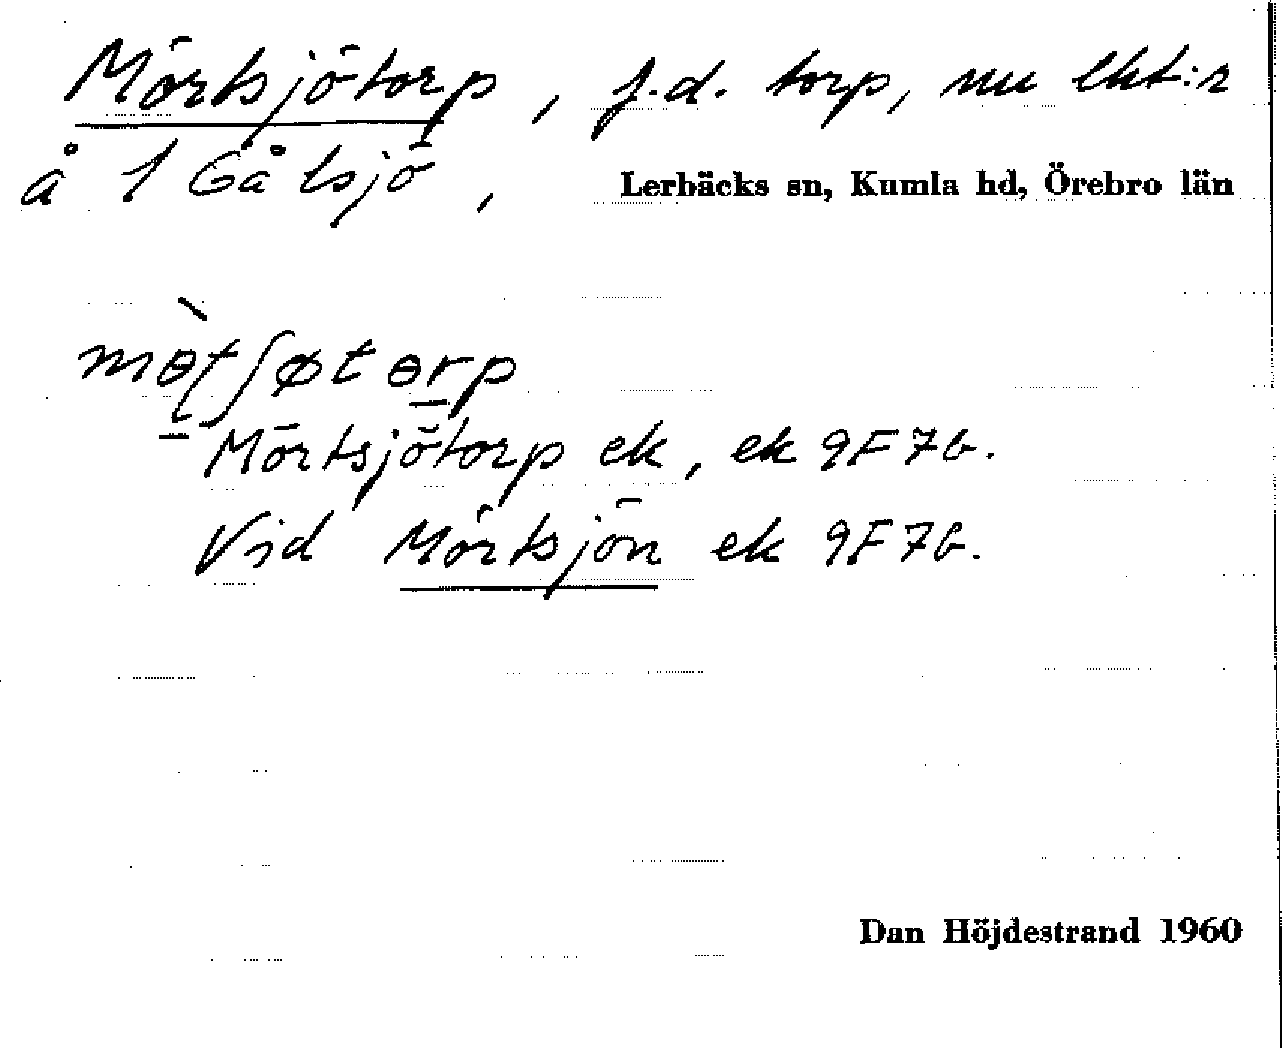 Mörtsjötorp, f.d. torp, nu lht:r
å 1 Gåltsjö, Lerbäcks sn, Kumla hd, Örebro län
Mörtsjötorp ek, ek 9F7b.
Vid Mörtsjön ek 9F7b.
Dan Höjdestrand 1960